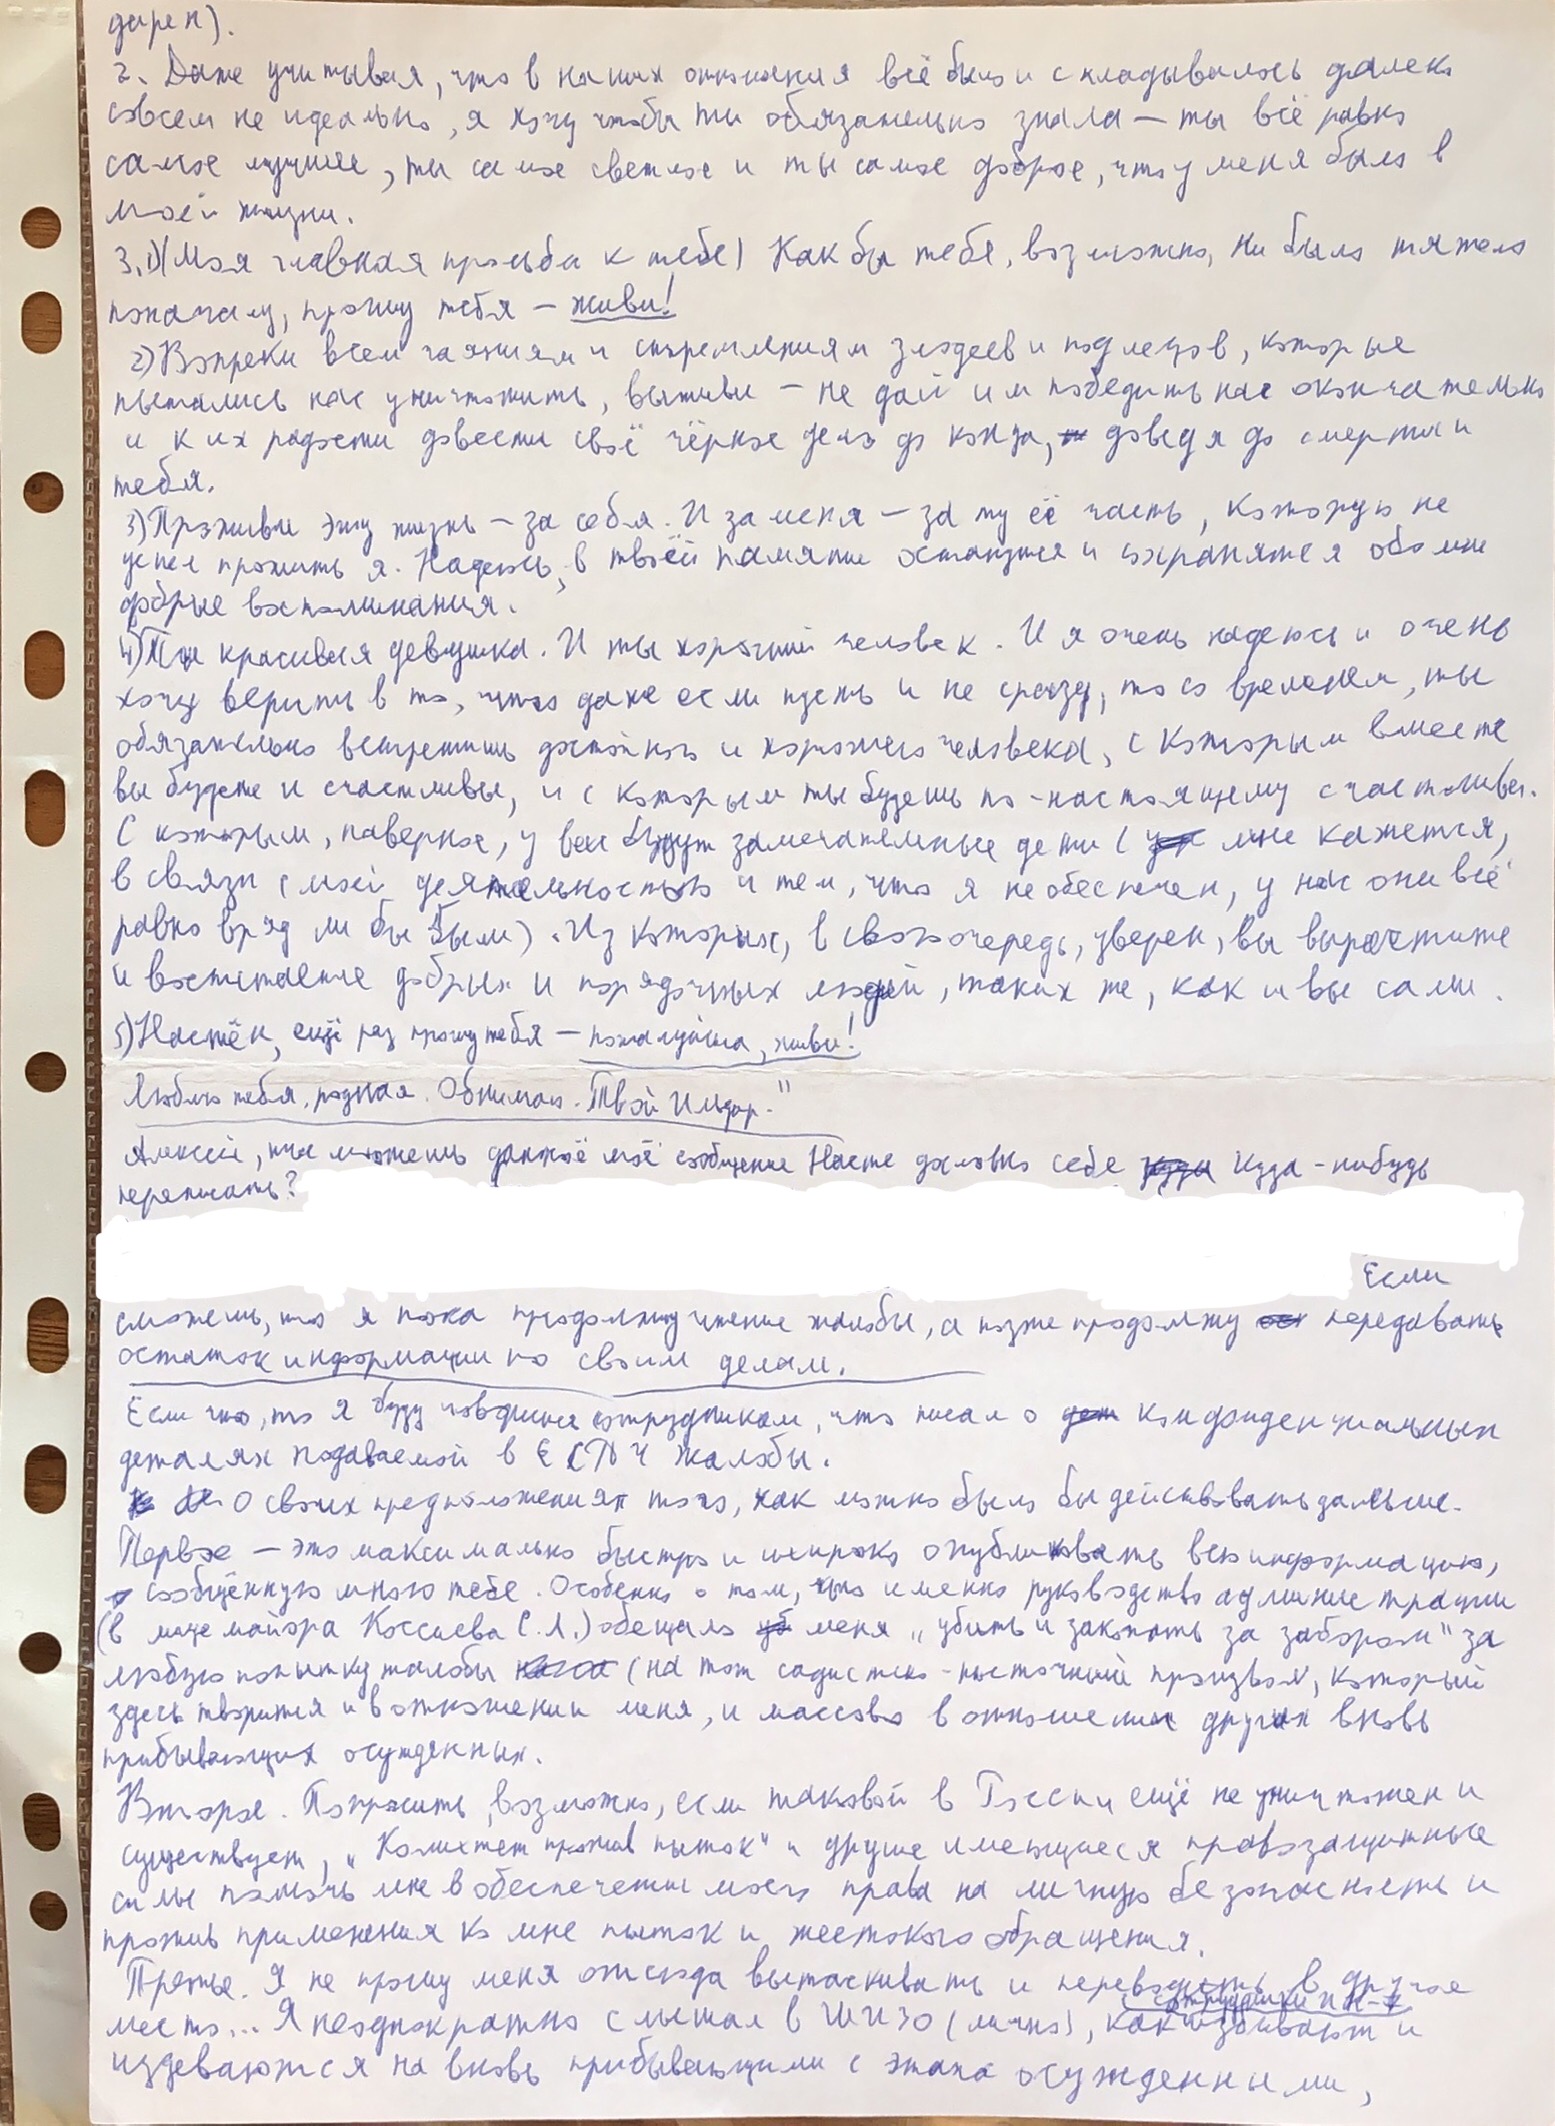 дарен).
2. Даже учитывая, что в наших отношениях всё было и складывалось далеко
совсем не идеально, я хочу чтобы ты обязательно знала – ты всё равно
самое лучшее, ты самое светлое и ты самое доброе, что у меня было в
моей жизни.
3.1) (Моя главная просьба к тебе) Как бы тебе, возможно, ни было тяжело
поначалу, прошу тебя – живи!
2) Вопреки всем чаяниям и стремлениям злодеев и подлецов, которые
пытались нас уничтожить, выживи – не дай им победить нас окончательно
и к их радости довести своё чёрное дело до конца, доведя до смерти и
тебя.
3) Проживи эту жизнь – за себя. И за меня – за ту её часть, которую не
успел прожить я. Надеюсь, в твоей памяти останутся и сохранятся обо мне
добрые воспоминания.
4) Ты красивая девушка. И ты хороший человек. И я очень надеюсь и очень
хочу верить в то, что даже если пусть и не сразу, то со временем, ты
обязательно встретишь достойного и хорошего человека, с которым вместе
вы будете и счастливы, и с которым ты будешь по-настоящему счастлива.
С которым, наверное, у вас будут замечательные дети (мне кажется,
в связи с моей деятельностью и тем, что я не обеспечен, у нас они всё
равно вряд ли бы были). Из которых, в свою очередь, уверен, вы вырастите
и воспитаете добрых и порядочных людей, таких же, как и вы сами.
5) Настён, ещё раз прошу тебя – пожалуйста, живи!
Люблю тебя, родная. Обнимаю. Твой Ильдар."
Алексей, ты можешь данное моё сообщение Насте дословно себе куда-нибудь
переписать?
Если
сможешь, то я пока продолжу чтение жалобы, а позже продолжу передавать
остаток информации по своим делам.
Если что, то я буду говорить сотрудникам, что писал о конфиденциальных
деталях подаваемой в ЕСПЧ жалобы.
О своих предположениях того, как можно было бы действовать дальше.
Первое – это максимально быстро и широко опубликовать всю информацию,
сообщённую мною тебе. Особенно о том, что именно руководство администрации
(в лице майора Коссиева С.Л.) обещало меня "убить и закопать за забором" за
любую попытку жалобы (на тот садистско-пыточный произвол, который
здесь творится и в отношении меня, и массово в отношении других вновь
прибывающих осужденных.
Второе. Попросить, возможно, если таковой в России ещё не уничтожен и
существует, "Комитет против пыток" и другие имеющиеся правозащитные
силы помочь мне в обеспечении моего права на личную безопасность и
против применения ко мне пыток и жестокого обращения.
Третье. Я не прошу меня отсюда вытаскивать и переводить в другое
место... Я неоднократно слышал в ШИЗО (лично), как сотрудники избивают и
издеваются на вновь прибывающими с этапа осужденными,